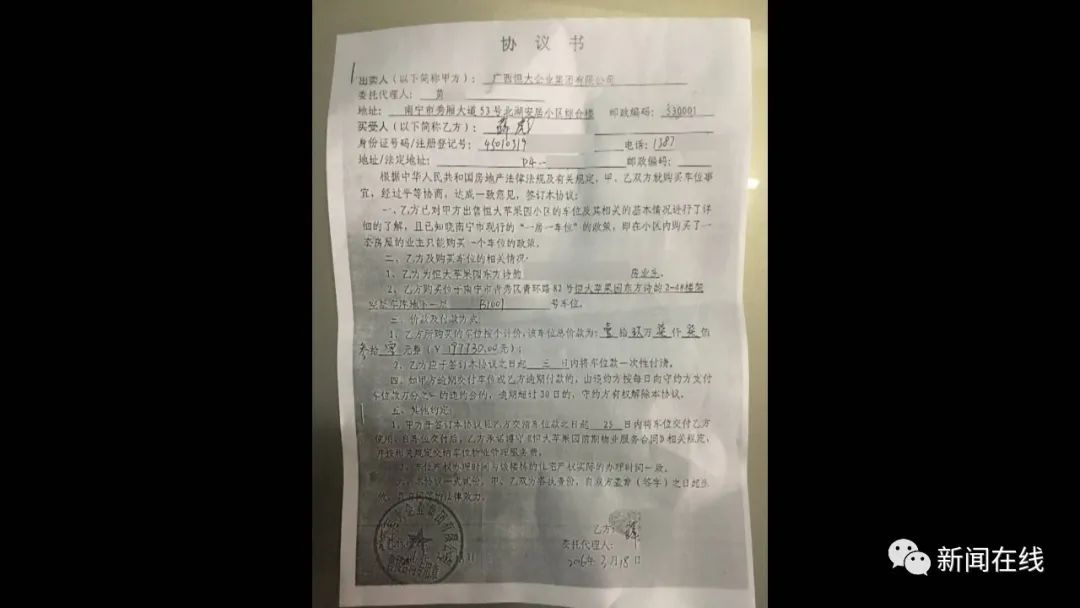 协议书
出卖人（以下简称甲方）：广西恒大企业集团有限公司
委托代理人：黄
地址：南宁市秀厢大道53号北湖安居小区综合楼 邮政编码：530001
买受人（以下简称乙方）：
身份证号码/注册登记号：45010319 电话：1387
地址/法定地址： 邮政编码：
根据中华人民共和国房地产法律法规及有关规定，甲、乙双方就购买车位事
宜，经过平等协商，达成一致意见，签订本协议：
一、乙方已对甲方出售恒大苹果园小区的车位及其相关的基本情况进行了详
细的了解，且已知晓南宁市现行的“一房一车位”的政策，即在小区内购买了一
套房屋的业主只能购买一个车位的政策。
二、乙方及购买车位的相关情况：
1、乙方为恒大苹果园东方诗的 房业主。
2、乙方购买位于南宁市青秀区青环路82号恒大苹果园东方诗的2-4#楼
车库地下一层 B1001 号车位。
三、价款及付款方式
1、乙方所购买的车位按个计价，该车位总价款为：壹拾玖万柒仟柒佰
叁拾零元整（￥197730.00元）；
2、乙方应于签订本协议之日起三日内将车位款一次性付清。
四、如甲方逾期交付车位或乙方逾期付款的，由违约方按每日向守约方支付
车位款万分之 的违约金的，逾期超过30日的，守约方有权解除本协议。
五、其他约定：
1、甲方于签订本协议且乙方交清车位款之日起 25 日内将车位交付乙方
使用，自车位交付后，乙方承诺遵守《恒大苹果园前期物业服务合同》相关规定，
并按相关规定交纳车位物业管理服务费。
2、车位产权办理时间与该楼栋的住宅产权实际的办理时间一致。
本协议一式贰份，甲、乙双方各执壹份，自双方盖章（签字）之日起生
效，具有同等的法律效力。
乙方：薛
委托代理人：
2016年3月18日
新闻在线